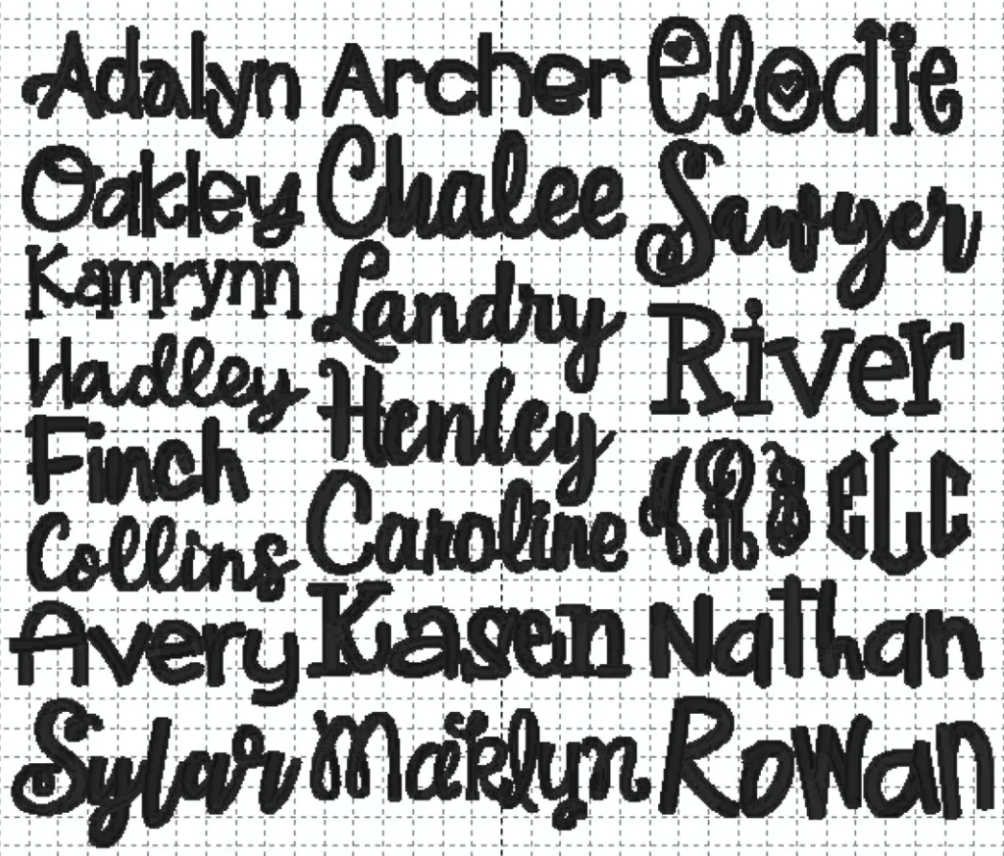 Adalyn
Oakley
Kamrynn
Hadley
Finch
Collins
Avery
Sylar
Archer
Chalee
Landry
Henley
Caroline
Kasen
Maiklyn
Elodie
Sawyer
River
eLc
Nathan
Rowan